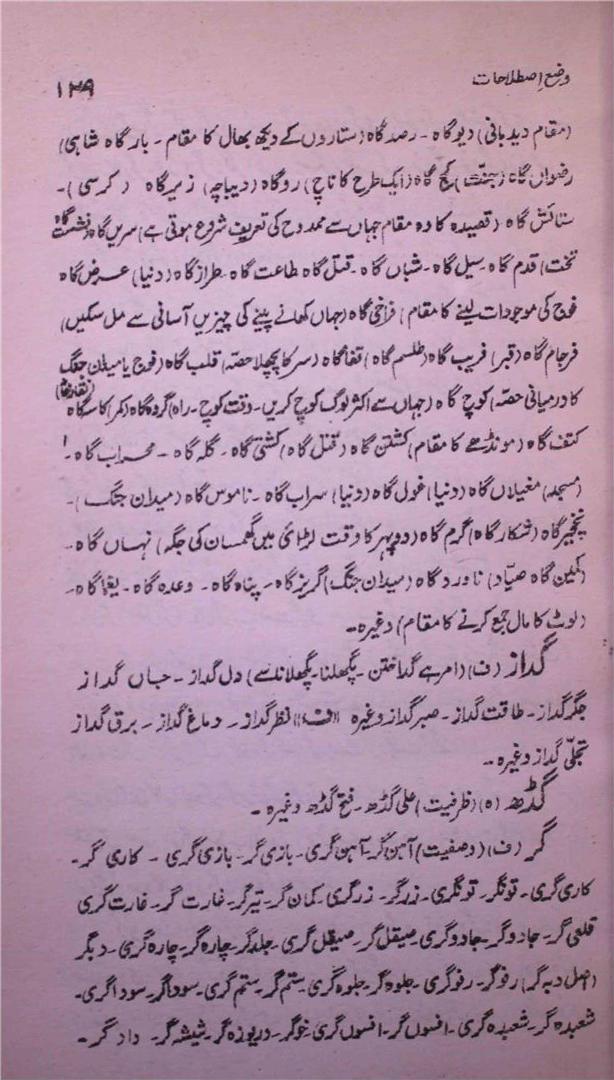 وضع اصطلاحات
۱۲۹
(مقام دیدبانی) دیوگاہ ۔ رصدگاہ (ستاروں کے دیکھ بھال کا مقام ۔ بارگاہ شاہی)
رضواں گاہ (جنت) کج گاہ (ایک طرح کا تاج) روگاہ (دیباچہ) زیرگاہ (کرسی) ۔
ستائش گاہ (قصیدہ کا وہ مقام جہاں سے ممدوح کی تعریف شروع ہوتی ہے) سریں گاہ (نشست گاہ
تخت) قدم گاہ ۔ سیل گاہ ۔ شباں گاہ ۔ قتل گاہ طاعت گاہ ۔ طرازگاہ (دنیا) عرض گاہ
فوج کی موجودات لینے کا مقام) فراخی گاہ (جہاں کھانے پینے کی چیزیں آسانی سے مل سکیں)
فرجام گاہ (قبر) فریب گاہ (طلسم گاہ) قفاگاہ (سر کا پچھلا حصّہ) قلب گاہ (فوج یا میدان جنگ
کا درمیانی حصّہ) کوچ گاہ (جہاں سے اکثر لوگ کوچ کریں ۔ وقت کوچ ۔ راہ) گردہ گاہ (کمر) کاسہ گاہ
کتف گاہ (مونڈھے کا مقام) کشتن گاہ (قتل گاہ) کشتی گاہ ۔ گلہ گاہ ۔ محراب گاہ ۔
(مسجد) مغیلاں گاہ (دنیا) غول گاہ (دنیا) سراب گاہ ۔ ناموس گاہ (میدان جنگ) ۔
نخچیرگاہ (شکارگاہ) گرم گاہ (دوپہر کا وقت لڑائی میں گھمسان کی جگہ) نہاں گاہ ۔
(کمین گاہ صیّاد) ناوردگاہ (میدان جنگ) گریزگاہ ۔ پناہ گاہ ۔ وعدہ گاہ ۔ یغماگاہ ۔
(لوٹ کا مال جمع کرنے کا مقام) وغیرہ ۔
گداز (ف) (امر ہے گداختن ۔ پگھلنا ۔ پگھلانا سے) دل گداز ۔ جاں گداز
جگرگداز ۔ طاقت گداز ۔ صبرگداز وغیرہ نظرگداز ۔ دماغ گداز ۔ برق گداز
تجلّی گداز وغیرہ ۔
گڈھ (ہ) (ظرفیت) علی گڈھ ۔ فتح گڈھ وغیرہ ۔
گر (ف) (وصفیت) آہن گر ۔ آہن گری ۔ بازی گر ۔ بازی گری ۔ کاری گر ۔
کاری گری ۔ تونگر ۔ تونگری ۔ زرگر ۔ زرگری ۔ کمان گر ۔ تیرگر ۔ غارت گر ۔ غارت گری
قلعی گر ۔ جادوگر ۔ جادوگری ۔ صیقل گر ۔ صیقل گری ۔ جلدگر ۔ چارہ گر ۔ چارہ گری ۔ دیگر
(اصل دیہ گر) رفوگر ۔ رفوگری ۔ جلوہ گر ۔ جلوہ گری ۔ ستم گر ۔ ستم گری ۔ سوداگر ۔ سوداگری ۔
شعبدہ گر ۔ شعبدہ گری ۔ افسوں گر ۔ افسوں گری ۔ خوگر ۔ دریوزہ گر ۔ شیشہ گر ۔ دادگر ۔